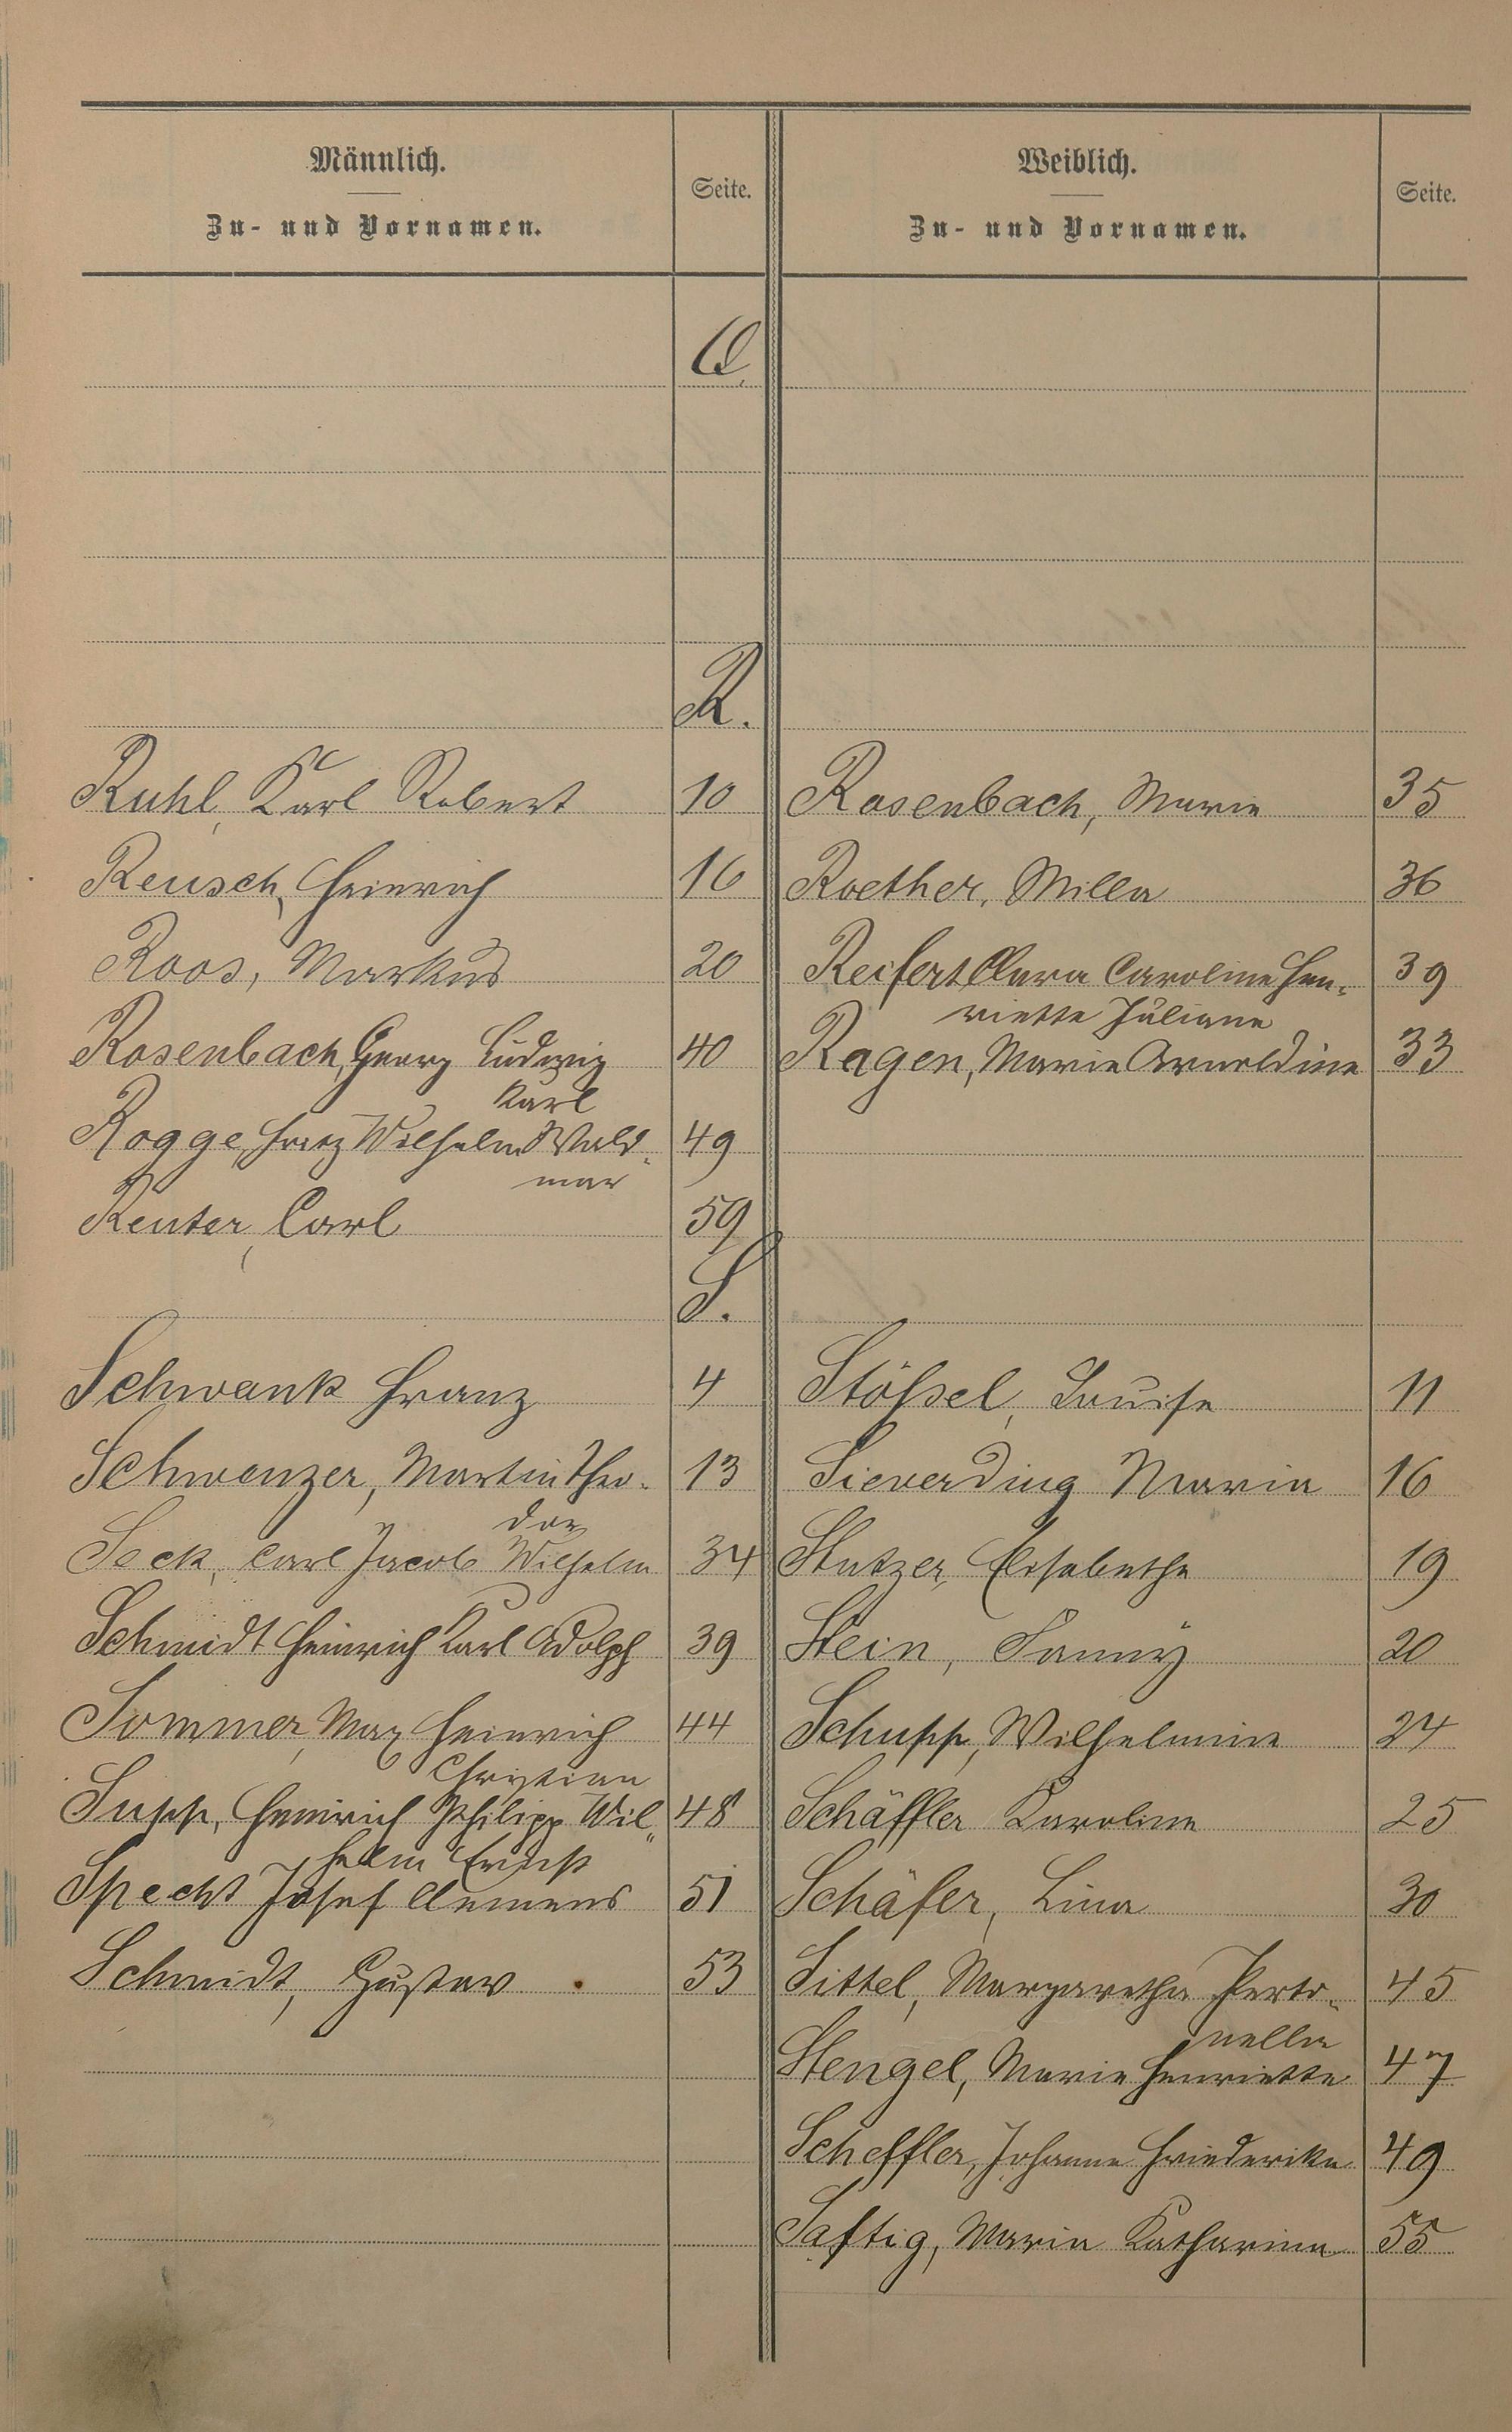 Männlich.
Zu- und Vornamen.
Seite.
Weiblich.
Zu- und Vornamen.
Seite.
Q.
R.
Ruhl, Karl Robert 10 Rosenbach, Marie 35
Reusch, Heinrich 16 Roether, Milla 36
Roos, Markus 20 Reifert Clara Caroline Hen- 39
riette Juliane
Rosenbach, Georg Ludwig 40 Ragen, Marie Arnoldine 33
Karl
Rogge, Fritz Wilhelm Wald- 49
mar
Reuter, Carl 59
S.
Schwank Franz 4 Stößel, Louise 11
Schwenzer, Martin Theo- 13 Sieverding Maria 16
dor
Seck, Carl Jacob Wilhelm 34 Stutzer, Elisabethe 19
Schmidt Heinrich Karl Adolph 39 Stein, Fanny 20
Sommer, Max Heinrich 44 Schupp, Wilhelmine 24
Christian
Supp, Heinrich Philipp Wil- 48 Schäffler Karoline 25
helm Ernst
Specht Josef Clemens 51 Schäfer, Lina 30
Schmidt, Gustav 53 Sittel, Margaretha Petro- 45
nella
Stengel, Marie Henriette 47
Scheffler, Johanne Friederike 49
Saftig, Maria Katharina 55